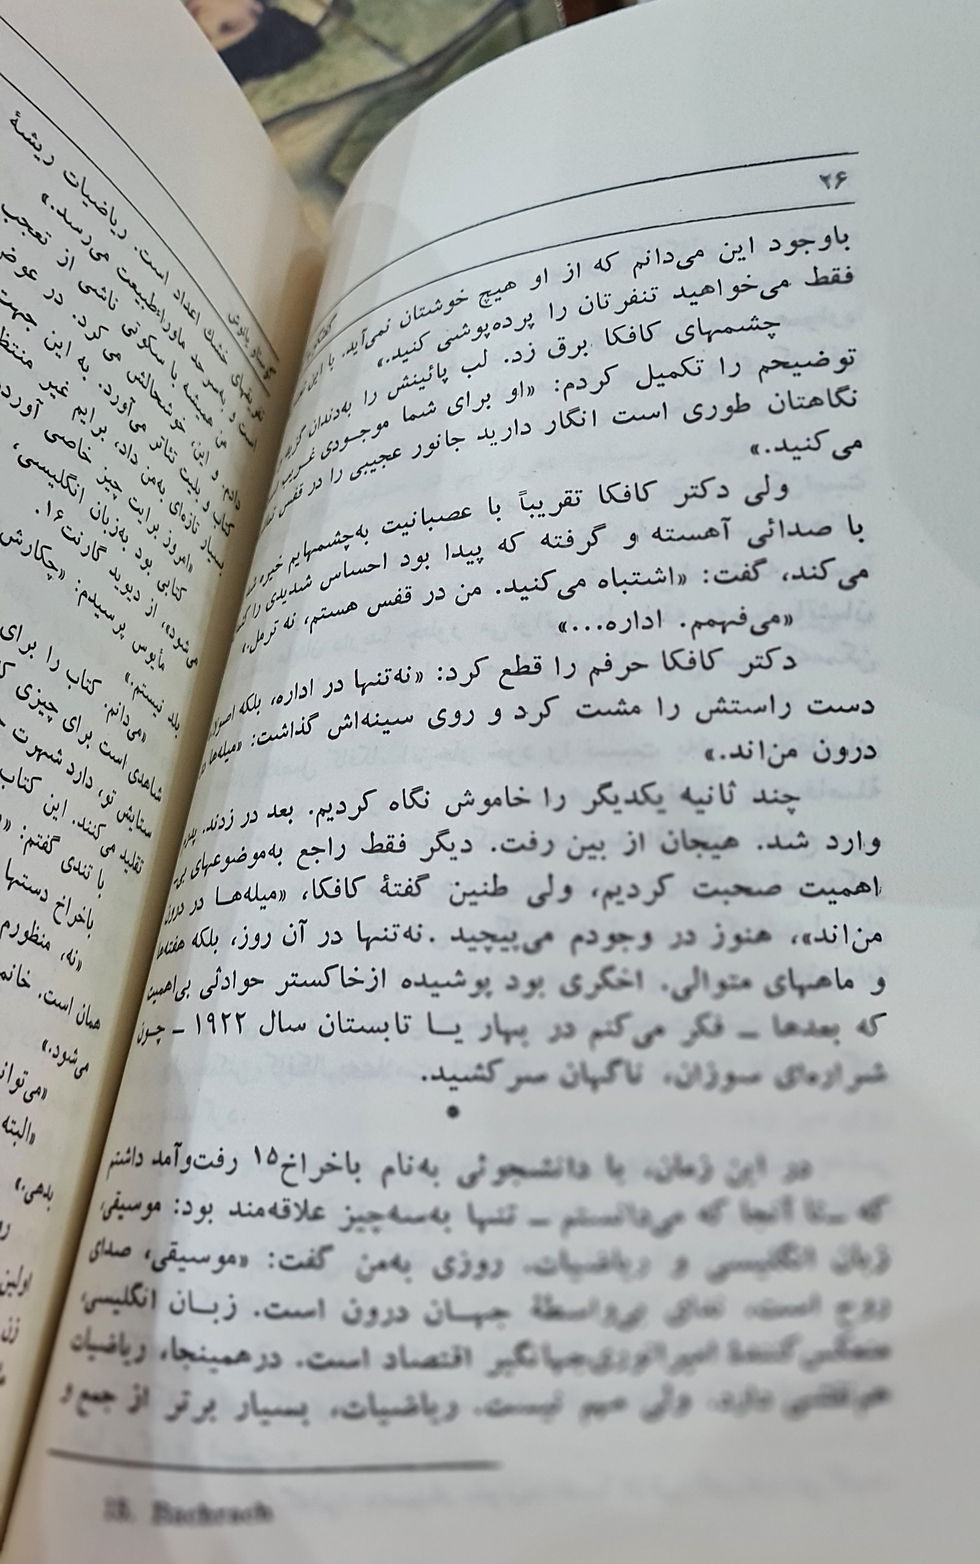 ۲۶
باوجود این می‌دانم که از او هیچ خوشتان نمی‌آید. با این
فقط می‌خواهید تنفرتان را پرده‌پوشی کنید.»
چشمهای کافکا برق زد. لب پائینش را به‌دندان گزید.
توضیحم را تکمیل کردم: «او برای شما موجودی غریب
نگاهتان طوری است انگار دارید جانور عجیبی را در قفس
می‌کنید.»
ولی دکتر کافکا تقریباً با عصبانیت به‌چشمهایم خیره شد
با صدائی آهسته و گرفته که پیدا بود احساس شدیدی را
می‌کند، گفت: «اشتباه می‌کنید. من در قفس هستم، نه ترمل.»
«می‌فهمم. اداره...»
دکتر کافکا حرفم را قطع کرد: «نه‌تنها در اداره، بلکه
دست راستش را مشت کرد و روی سینه‌اش گذاشت: «میله‌ها
درون من‌اند.»
چند ثانیه یکدیگر را خاموش نگاه کردیم. بعد در زدند.
وارد شد. هیجان از بین رفت. دیگر فقط راجع به‌موضوعهای بی‌-
اهمیت صحبت کردیم، ولی طنین گفتهٔ کافکا، «میله‌هـا در درون
من‌اند»، هنوز در وجودم می‌پیچید .نه‌تنها در آن روز، بلکه هفته‌ها
و ماههای متوالی. اخگری بود پوشیده ازخاکستر حوادثی بی‌اهمیت
که بعدها ــ فکر می‌کنم در بهار یـا تابستان سال ۱۹۲۲ ــ چون
شراره‌ای سوزان، ناگهان سر کشید.
•
در این زمان، با دانشجوئی به‌نام باخراخ۱۵ رفت‌وآمد داشتم
که ــ‌تا آنجا که می‌دانستم ــ تنها به‌سه‌چیز علاقه‌مند بود: موسیقی،
زبان انگلیسی و ریاضیات. روزی به‌من گفت: «موسیقی، صدای
روح است، ندای بی‌واسطهٔ جهـان درون است. زبـان انگلیسی،
منعکس‌کنندهٔ امپراتوری‌جهانگیر اقتصاد است. درهمینجا، ریاضیات
هم‌نقشی دارد. ولی مهم نیست. ریاضیات، بسیار برتر از جمع و
15. Bachrach
است. ریاضیات ریشهٔ
خشك اعداد است
است و به‌سرحد ماوراءطبیعت می‌رسد.»
من همیشه با سکوتی ناشی از تعجب
دادم. و این، خوشحالش می‌کرد. در عوض
کتاب و بلیت تئاتر می‌آورد. به این جهت
بسیار تازه‌ای به‌من داد، برایم غیر
«امروز برایت چیز خاصی آورده
کتابی بود به‌زبان انگلیسی،
می‌شود»، از دیوید گارنت۱۶.
مأیوس پرسیدم: «چکارش
بلد نیستم.»
«می‌دانم. کتاب را برای
شاهدی است برای چیزی
ستایش تو، دارد شهرت
تقلید می‌کنند. این کتاب
با تندی گفتم:
باخراخ دستها
«نه، منظورم
همان است. خانم
می‌شود.»
«البته
بدهی.»
اولین
زن